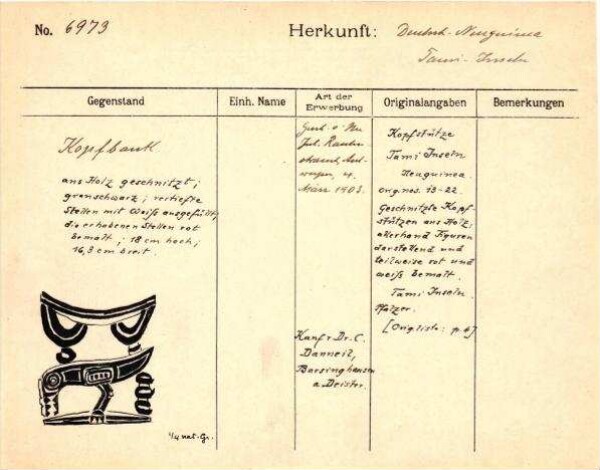 No. 6973
Herkunft: Deutsch-Neuguinea
Tami-Inseln
Gegenstand
Einh. Name
Art der Erwerbung
Originalangaben
Bemerkungen
Kopfbank
aus Holz geschnitzt;
grauschwarz; vertiefte
Stellen mit Weiß ausgefüllt,
die erhobenen Stellen rot
bemalt; 18 cm hoch;
16,3 cm breit.
1/4 nat. Gr.
März 1903.
Kauf v Dr. C.
Danneil,
Barsinghausen
a. Deister.
Kopfstütze
Tami Inseln
Neuguinea
org. nos. 13-22.
Geschnitzte Kopf-
stützen aus Holz,
allerhand Figuren
darstellend und
teilweise rot und
weiß bemalt.
Tami Inseln
[Orig.liste: p.6]